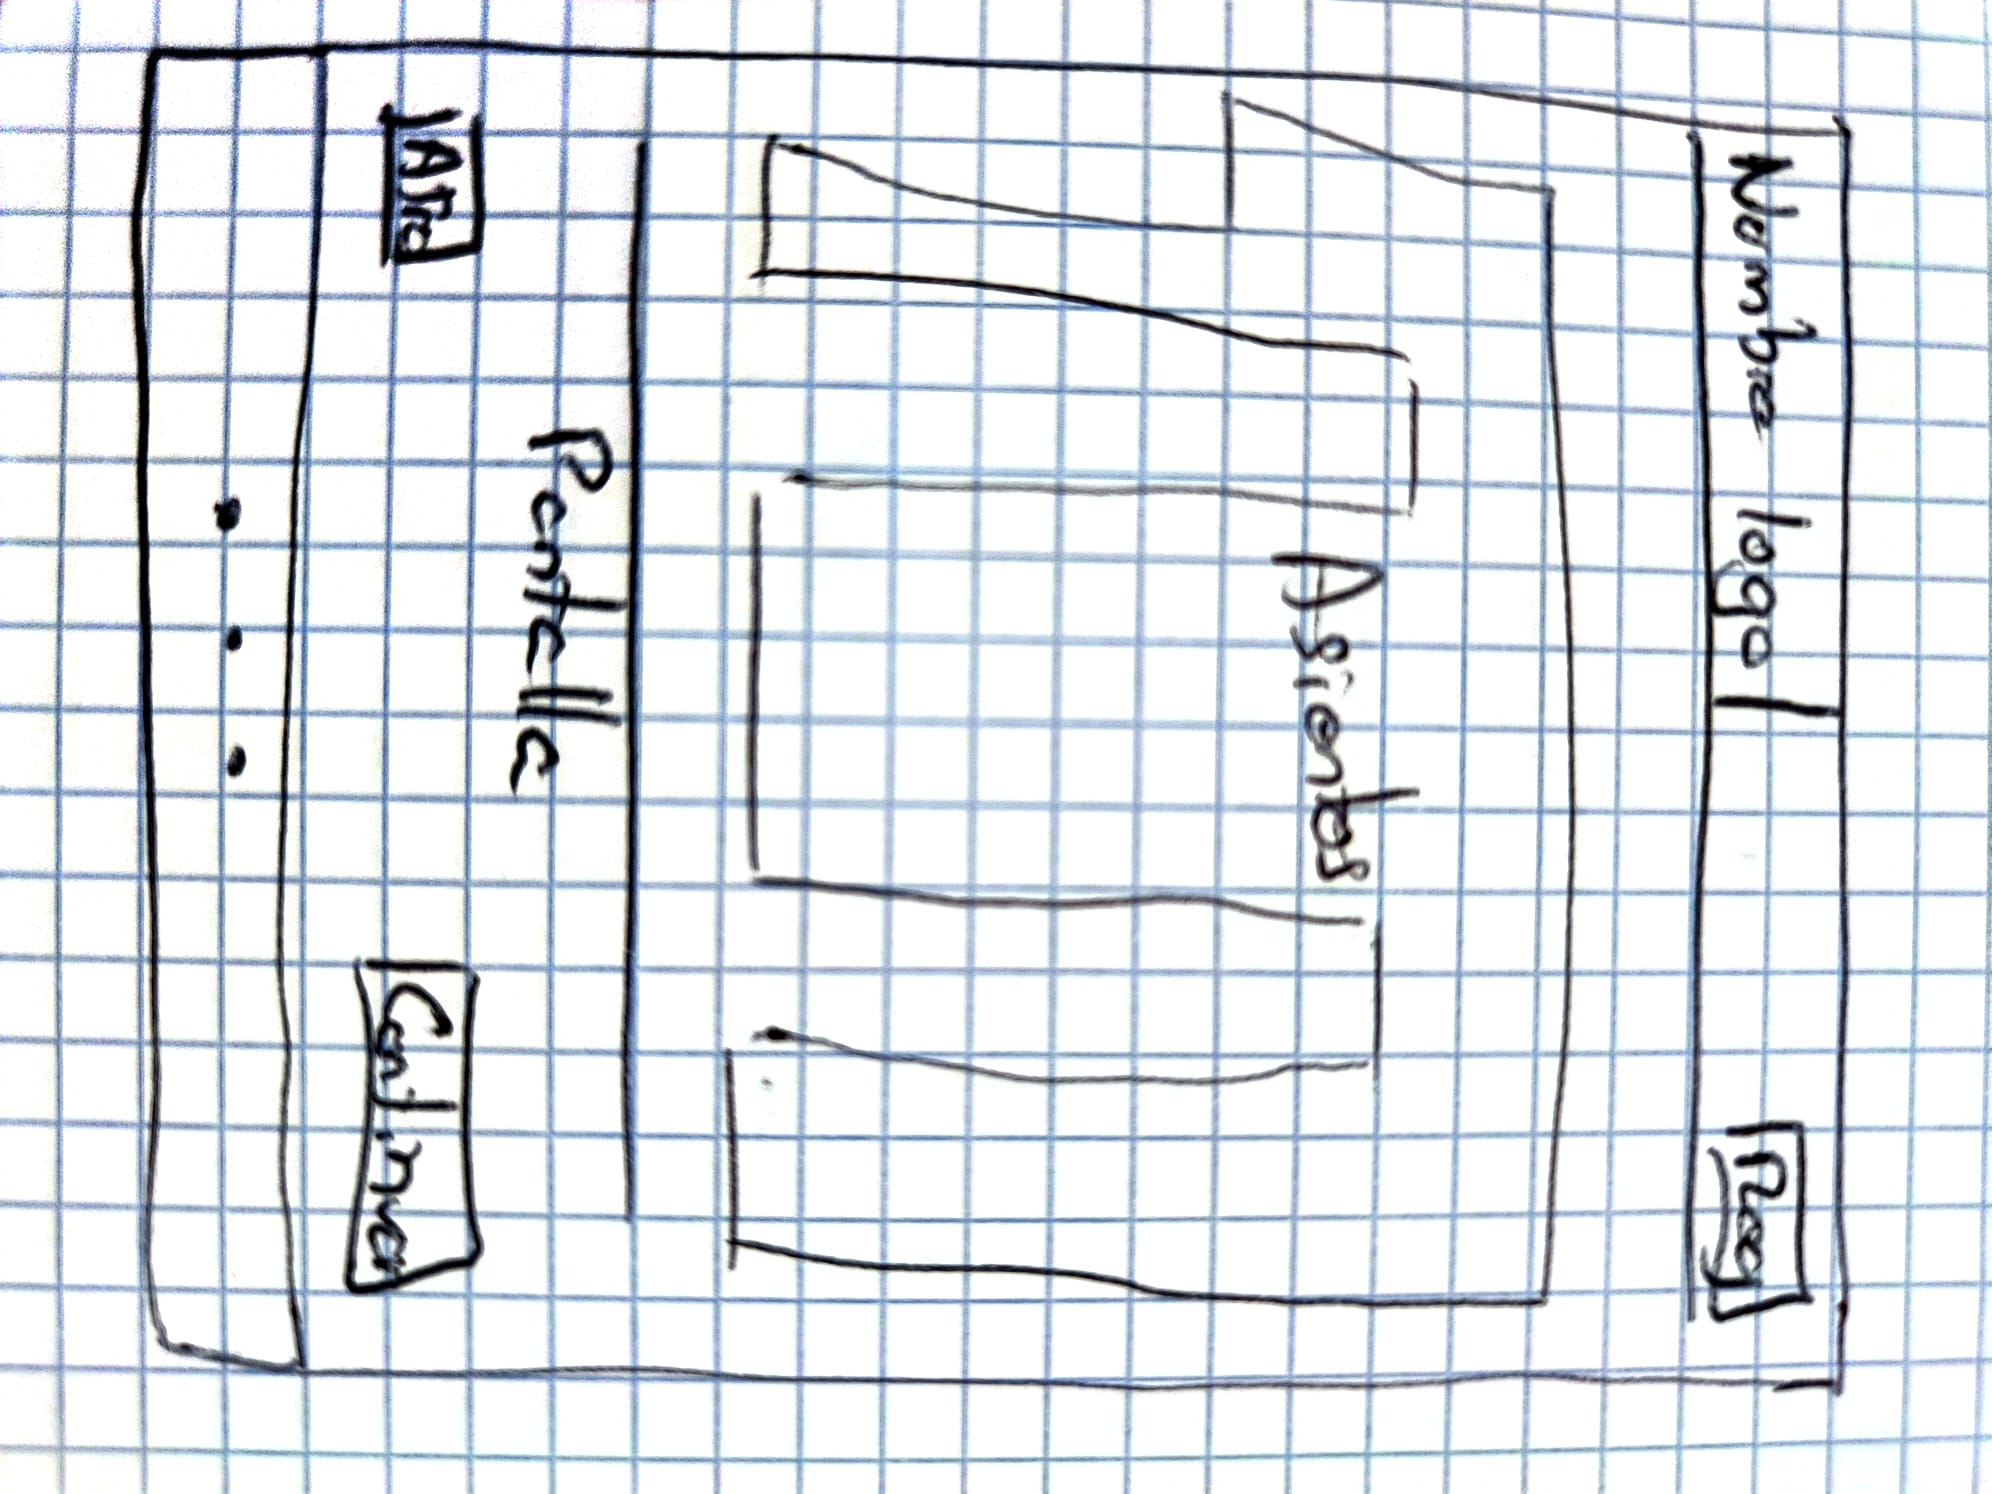 Nombre logo
Reg
Asientos
Pantalla
Atra
Continuar